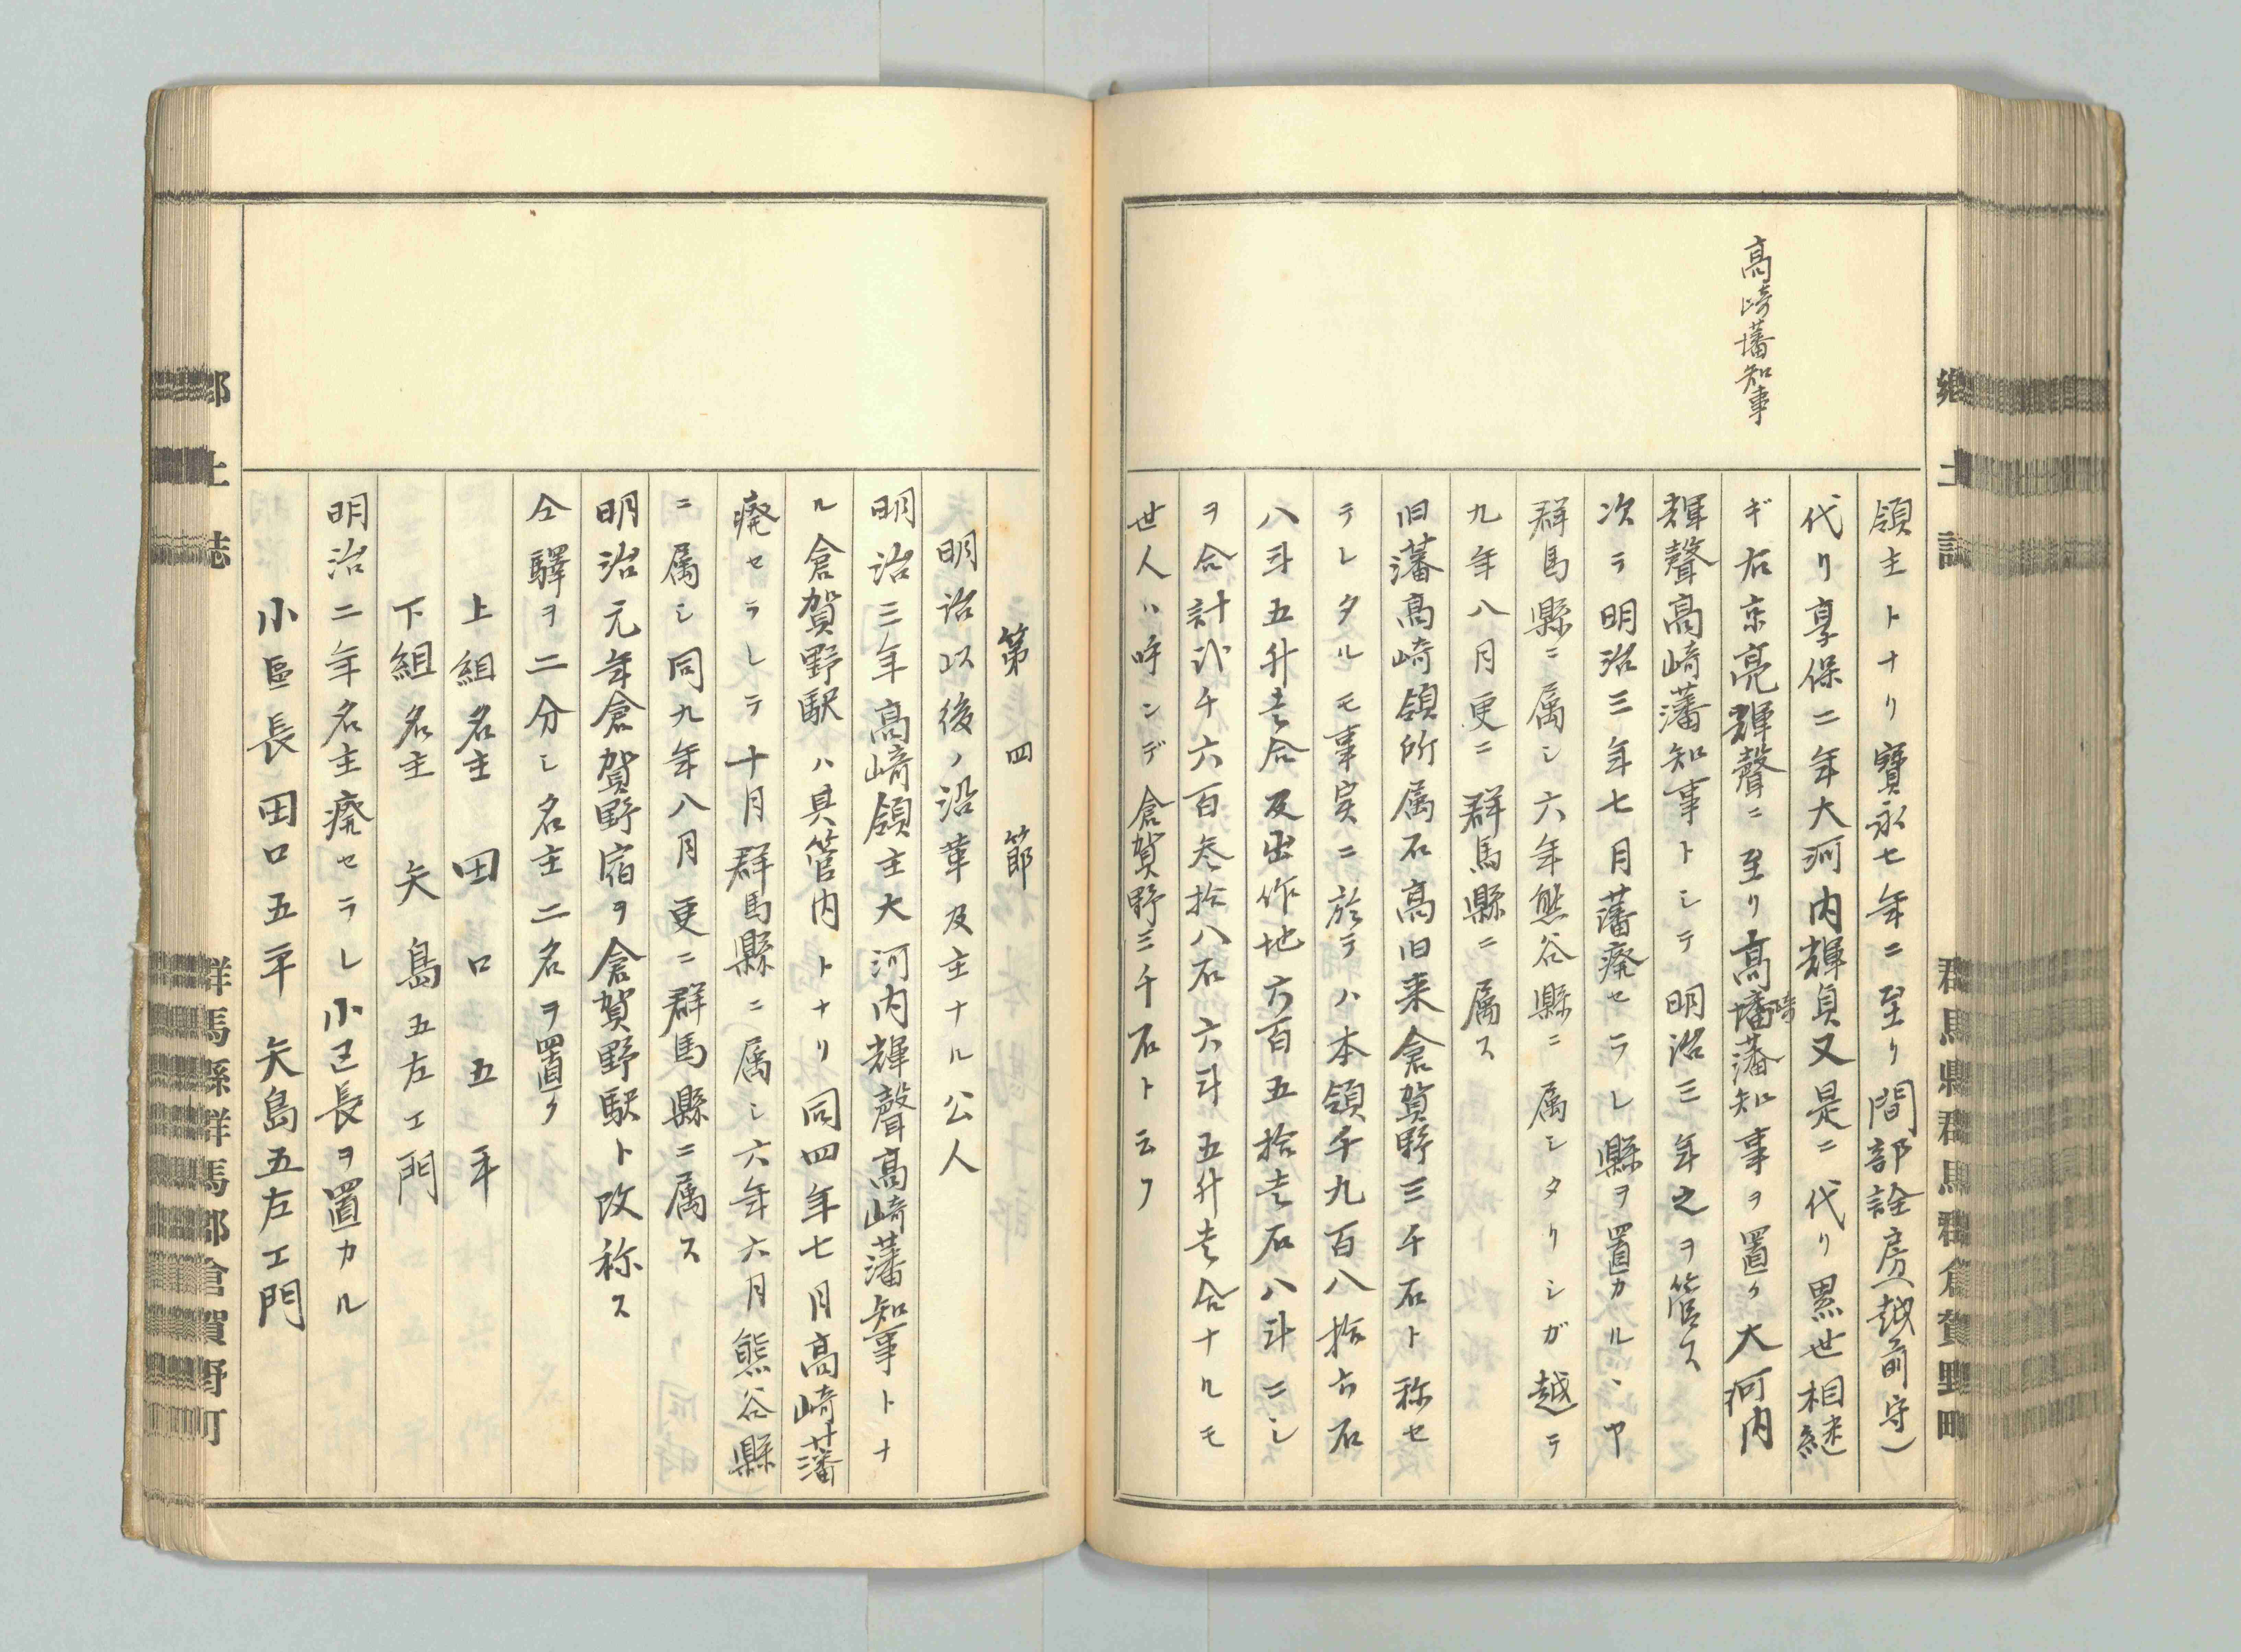 鄉土誌
群馬縣群馬郡倉賀野町
高崎藩知事
領主トナリ寶永七年ニ至リ間部詮房(越前守)
代リ享保二年大河内輝貞又是ニ代リ累世相継
ギ右京亮輝聲ニ至リ高崎藩藩知事ヲ置ク大河内
輝聲高崎藩知事トシテ明治三年之ヲ管ス
次テ明治三年七月藩廃セラレ縣ヲ置カルヽヤ
群馬縣ニ属シ六年熊谷縣ニ属シタリシガ越テ
九年八月更ニ群馬縣ニ属ス
旧藩高崎領所属石高旧来倉賀野三千石ト称セ
ラレタルモ事実ニ於テハ本領千九百八拾六石
八斗五升壱合及出作地六百五拾壱石八斗ニシ
ヲ合計弐千六百叁拾八石六斗五升壱合ナルモ
世人ハ呼ンデ倉賀野三千石ト云フ
第四節
明治以後ノ沿革及主ナル公人
明治三年高崎領主大河内輝聲高崎藩知事トナ
ル倉賀野駅ハ其管内トナリ同四年七月高崎藩
廃セラレテ十月群馬縣ニ属シ六年六月熊谷縣
ニ属シ同九年八月更ニ群馬縣ニ属ス
明治元年倉賀野宿ヲ倉賀野駅ト改称ス
仝驛ヲ二分シ名主二名ヲ置ク
上組名主 田口五平
下組名主 矢島五左エ門
明治二年名主廃セラレ小区長ヲ置カル
小區長田口五平 矢島五左エ門
郷土誌
群馬縣群馬郡倉賀野町